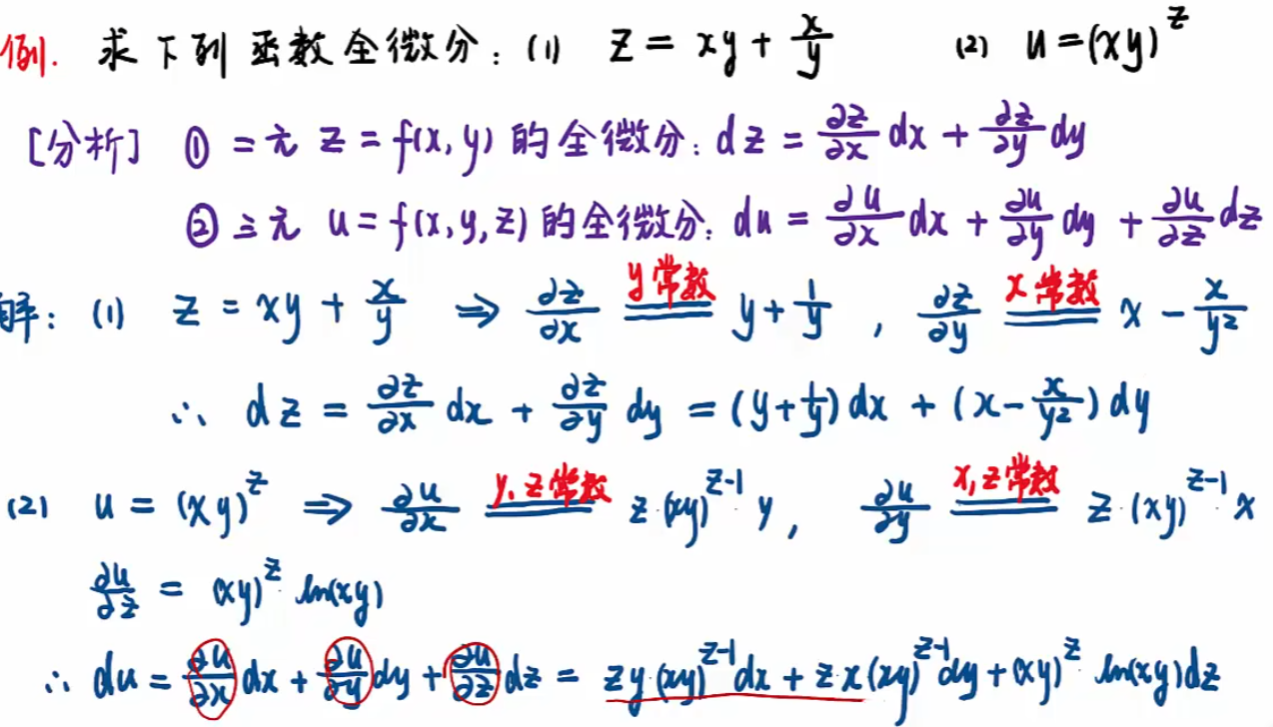 例. 求下列函数全微分: (1) z = xy + x/y (2) u = (xy)^z
[分析] ① 二元 z = f(x, y) 的全微分: dz = ∂z/∂x dx + ∂z/∂y dy
② 三元 u = f(x, y, z) 的全微分: du = ∂u/∂x dx + ∂u/∂y dy + ∂u/∂z dz
解: (1) z = xy + x/y ⇒ ∂z/∂x =(y常数)= y + 1/y , ∂z/∂y =(x常数)= x - x/y²
∴ dz = ∂z/∂x dx + ∂z/∂y dy = (y + 1/y) dx + (x - x/y²) dy
(2) u = (xy)^z ⇒ ∂u/∂x =(y, z常数)= z·(xy)^(z-1)·y, ∂u/∂y =(x, z常数)= z·(xy)^(z-1)·x
∂u/∂z = (xy)^z·ln(xy)
∴ du = ∂u/∂x dx + ∂u/∂y dy + ∂u/∂z dz = zy·(xy)^(z-1) dx + z·x(xy)^(z-1) dy + (xy)^z·ln(xy) dz